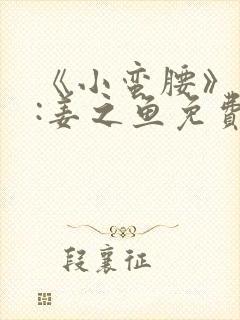 《小蛮腰》
:姜之鱼免費
段襄征